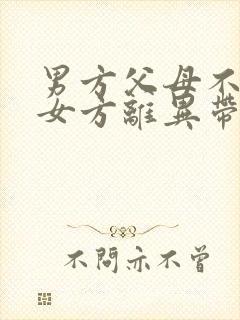 男方父母不
女方離異帶
不問亦不曾